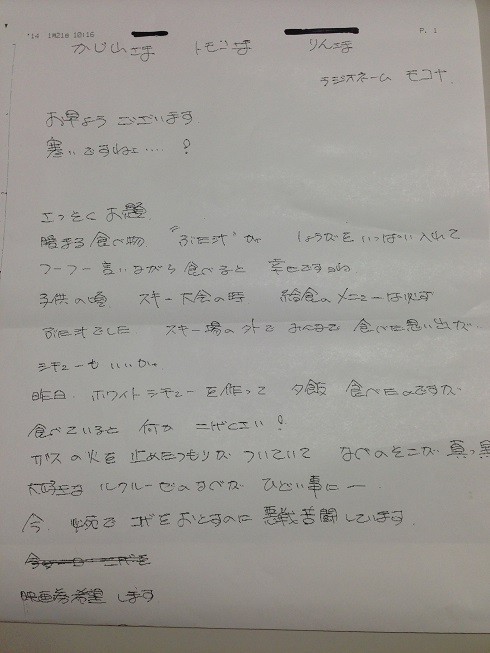 '14 1月21日 10:16 P. 1
かじい様 トモゾ様 りん様
ラジオネーム モコナ
お早よう ございます
寒いですねェ…‥ ?
さっそく お題
暖まる食べ物 "ぶた汁"かな しょうがをいっぱい入れて
フーフー言いながら食べると 幸せですね
子供の頃 スキー大会の時 給食のメニューは必ず
ぶた汁でした スキー場の外で みんなで 食べた思い出が
シチューもいいかな
昨日 ホワイトシチューを作って 夕飯 食べたのですが
食べていると 何か こげくさい!
ガスの火を 止めたつもりが ついていて なべのそこが 真っ黒
大好きな ルクルーゼのなべが ひどい事にー
今、必死で コゲをおとすのに 悪戦苦闘しています
映画券希望 します